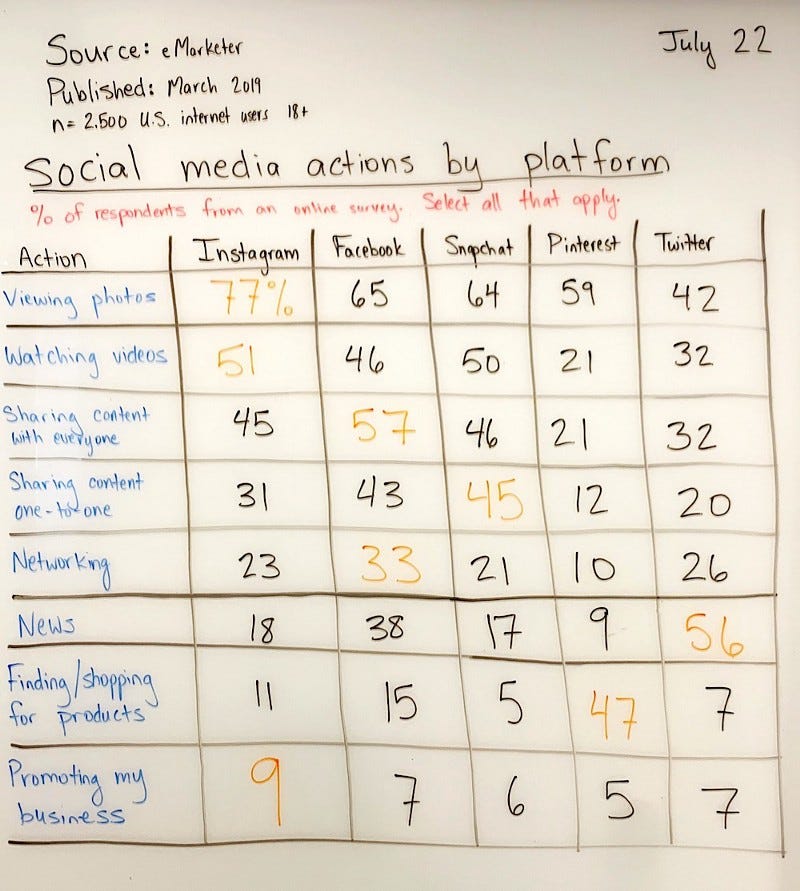 Source: eMarketer
July 22
Published: March 2019
n= 2,500 U.S. internet users 18+
Social media actions by platform
% of respondents from an online survey. Select all that apply.
Action Instagram Facebook Snapchat Pinterest Twitter
Viewing photos 77% 65 64 59 42
Watching videos 51 46 50 21 32
Sharing content
with everyone 45 57 46 21 32
Sharing content
one-to-one 31 43 45 12 20
Networking 23 33 21 10 26
News 18 38 17 9 56
Finding/shopping
for products 11 15 5 47 7
Promoting my
business 9 7 6 5 7